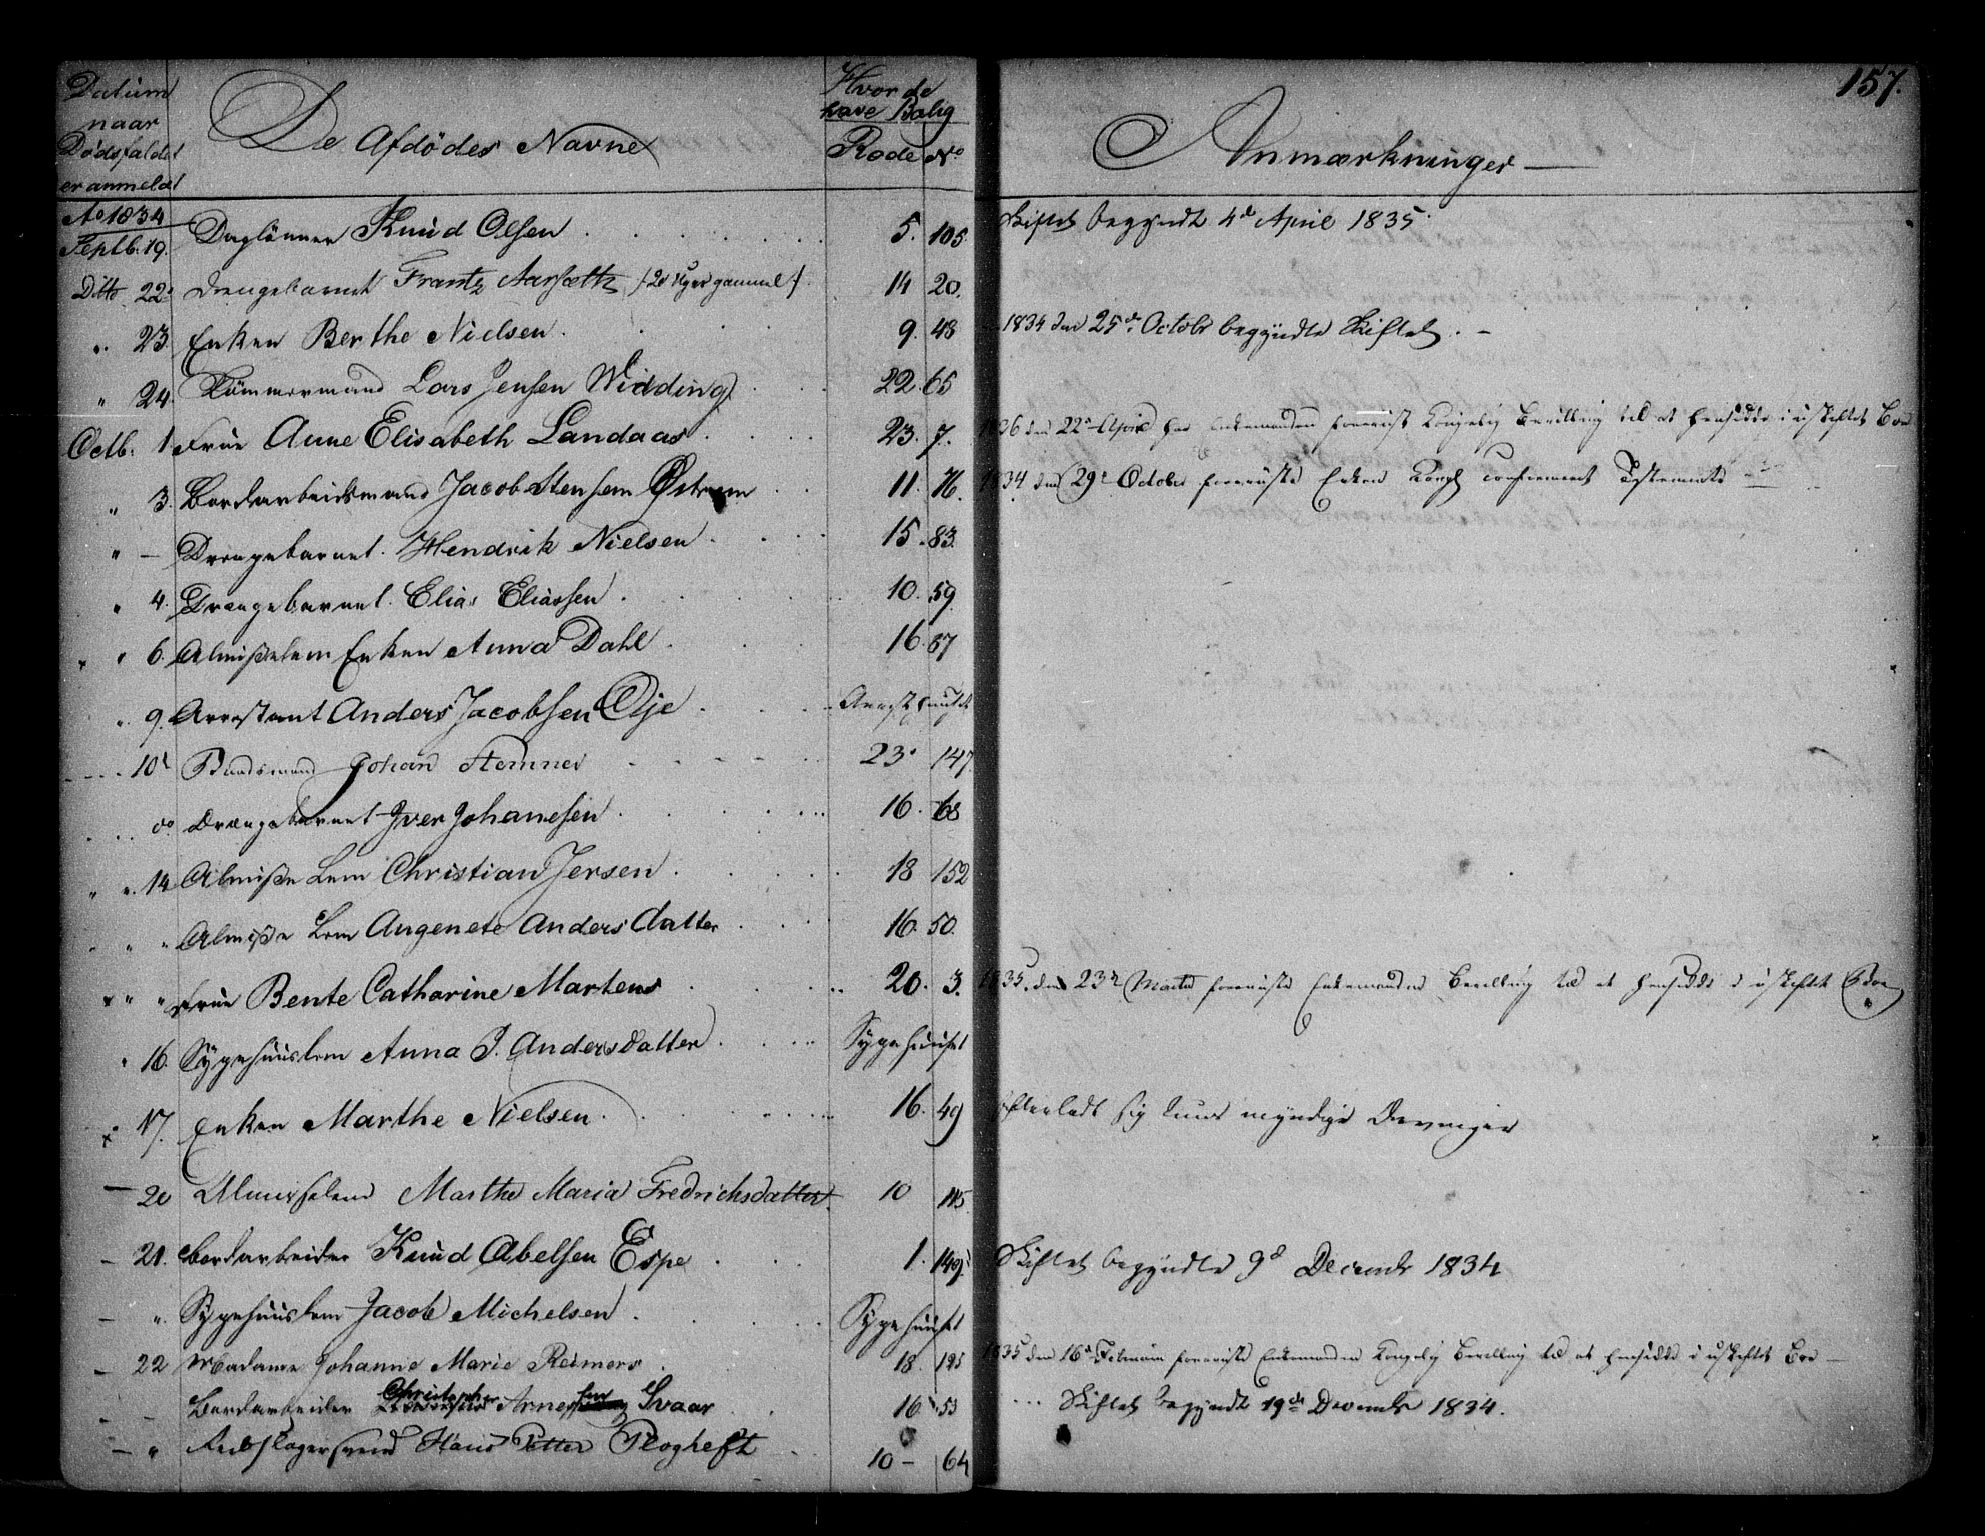 157.
Datum naar Dødsfaldet er anmeldt
De Afdødes Navne
Hvor de have Bolig
Rode No
Anmærkninger
Ao 1834
Septb. 19. Daglönner Knud Olsen 5. 105. Skiftet begyndt 4d April 1835.
Ditto 22d Drengebarnet Frantz Aarsæth /20 Uger gammel/ 14 20.
" 23. Enken Berthe Nielsen 9. 48 1834 den 25de Octobr begyndte Skiftet.
" 24. Tömmermand Lars Jensen Widding 22. 65
Octb. 1 Frue Anne Elisabeth Landaas 23. 7. 1836 den 22d April har Enkemanden foreviist Kongelig Bevilling til at hensidde i uskiftet Boe
" 3. Bordarbeidsmand Jacob Stensen Østrem 11. 76. 1834 den 29d October foreviiste Enken Kongl confirmeret Testamente
" — Drengebarnet Hendrik Nielsen 15. 83.
" 4. Drengebarnet Elias Eliassen 10. 59
" 6. Almisselem Enken Anna Dahl 16. 37
" 9. Arrestant Anders Jacobsen Øije Arresthuuset
10d Baadsmand Johan Stemner 23. 147.
do Drængebarnet Iver Johanesen 16. 68
" 14 Almisse Lem Christian Jersen 18 152
" " Almisse Lem Angenete Anders datter 16. 50.
" " Frue Bente Catharine Martens 20. 3. 1835. den 23d Martz foreviiste Enkemanden Bevilling til at hensidde i uskiftet Boe
" 16. Sygehuuslem Anna J. Andersdatter Sygehuuset
17. Enken Marthe Nielsen 16. 49 efterladt sig kuns myndige Arvinger
— 20 Almisselem Marthe Maria Fredrichsdatter 10 115.
— 21. Bordarbeider Knud Abelsen Espe 1. 149. Skiftet begyndte 9d December 1834
— " Sygehuuslem Jacob Michelsen Sygehuuset
— 22 Madame Johanne Marie Reimers 18. 195 1835 den 16d Februari foreviiste Enkemanden Kongelig Bevilling til at hensidde i uskiftet Boe —
— Bordarbeider Christopher Arnesen Svaar 16. 53 Skiftet begyndt 19de December 1834.
— " Rebslagersvend Hans Petter Plogheft 10 — 64